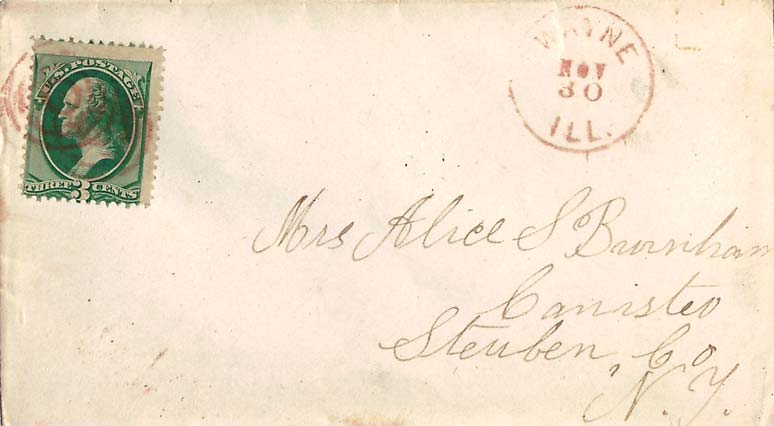 U.S. POSTAGE
THREE 3 CENTS
WAYNE
NOV
30
ILL.
Mrs Alice S Burnham
Canisteo
Steuben, Co
N.Y.